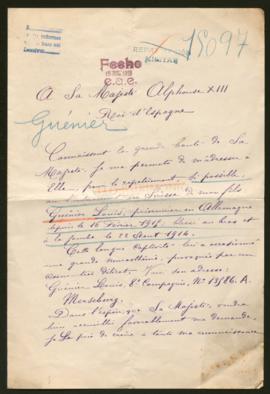 REPATRIACION
MILITAR
18097
Fecho
e.a.e.
A Sa Majesté Alphonse XIII
Roi d'Espagne
Guénier
Connaissant la grande bonté de Sa
Majesté, je me permets de m'adresser à
Elle, pour le rapatriement, si possible,
en Suisse de mon fils
Guénier Louis, prisonnier en Allemagne
depuis le 16 1915. au bras et
à la jambe le 22 Août 1914.
Cette longue captivité lui a occasionné
une grande neurasthénie, provoquée par un
Son adresse:
Guénier Louis, 8e Compagnie, N° 13586. A.
Merseburg.
Dans l'espoir que Sa Majesté voudra
bien accueillir favorablement ma demande,
je La prie de croire à toute ma reconnaissance